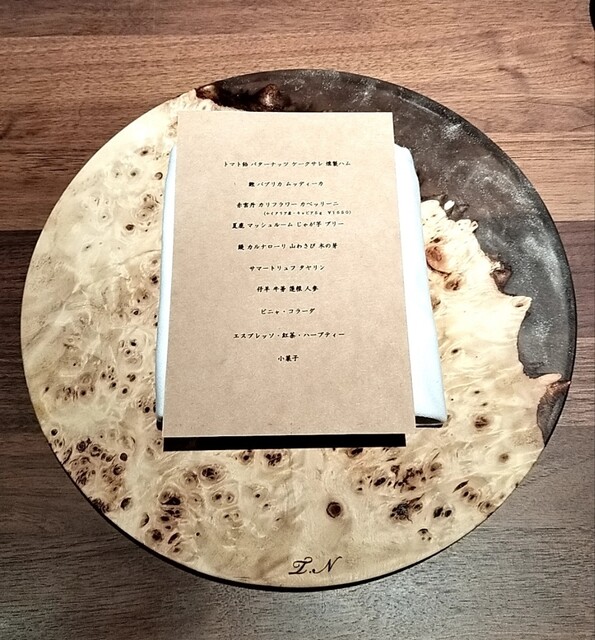 トマト飴 バターナッツ ケークサレ 燻製ハム
鮑 パプリカ ムッディーカ
赤雲丹 カリフラワー カペッリーニ
(+イタリア産・キャビア5g ¥1650)
夏鹿 マッシュルーム じゃが芋 ブリー
鰻 カルナローリ 山わさび 木の芽
サマートリュフ タヤリン
仔羊 牛蒡 蓮根 人参
ピニャ・コラーダ
エスプレッソ・紅茶・ハーブティー
小菓子
T.N